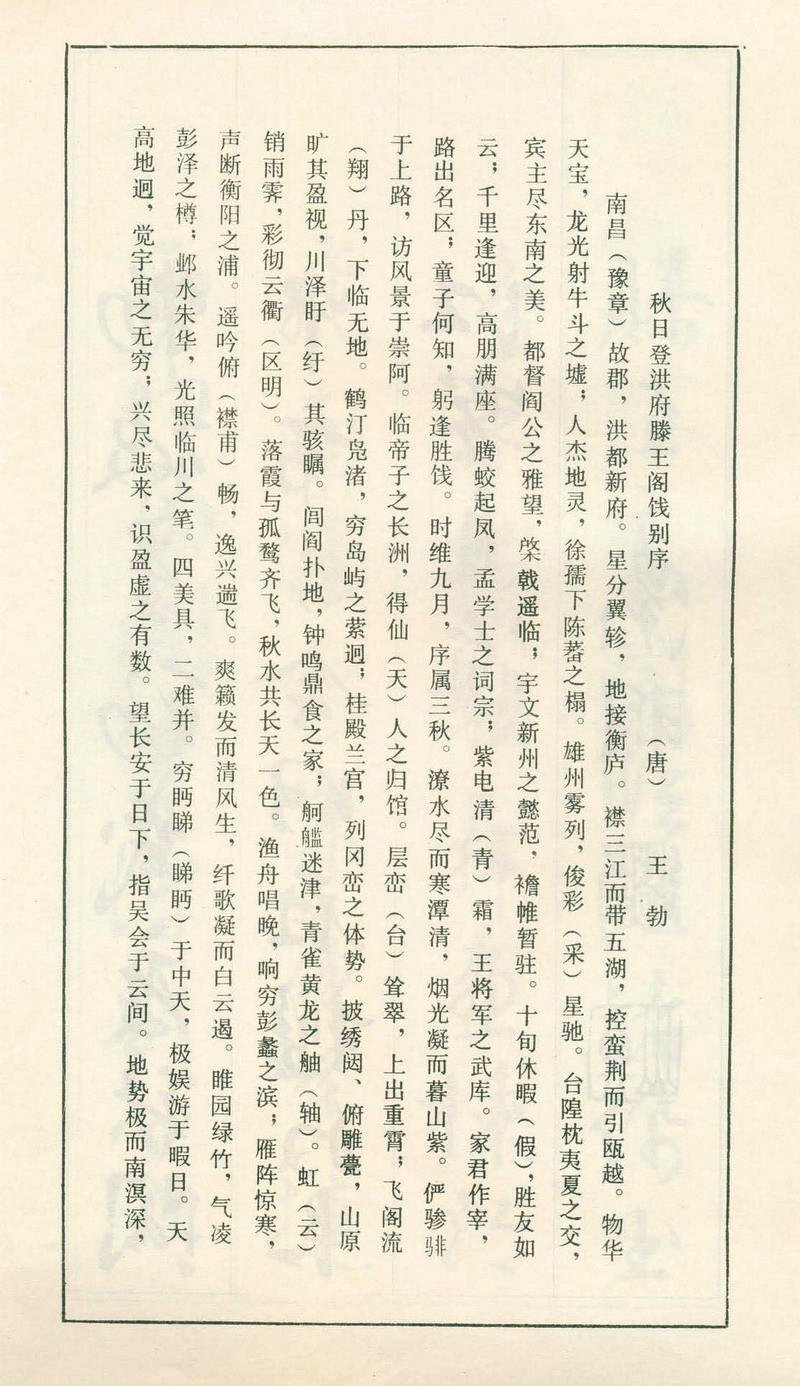 秋日登洪府滕王阁饯别序 （唐） 王勃
南昌（豫章）故郡，洪都新府。星分翼轸，地接衡庐。襟三江而带五湖，控蛮荆而引瓯越。物华
天宝，龙光射牛斗之墟；人杰地灵，徐孺下陈蕃之榻。雄州雾列，俊彩（采）星驰。台隍枕夷夏之交，
宾主尽东南之美。都督阎公之雅望，棨戟遥临；宇文新州之懿范，襜帷暂驻。十旬休暇（假），胜友如
云；千里逢迎，高朋满座。腾蛟起凤，孟学士之词宗；紫电清（青）霜，王将军之武库。家君作宰，
路出名区；童子何知，躬逢胜饯。时维九月，序属三秋。潦水尽而寒潭清，烟光凝而暮山紫。俨骖騑
于上路，访风景于崇阿。临帝子之长洲，得仙（天）人之归馆。层峦（台）耸翠，上出重霄；飞阁流
（翔）丹，下临无地。鹤汀凫渚，穷岛屿之萦迴；桂殿兰宫，列冈峦之体势。披绣闼、俯雕甍，山原
旷其盈视，川泽盱（纡）其骇瞩。闾阎扑地，钟鸣鼎食之家；舸艦迷津，青雀黄龙之舳（轴）。虹（云）
销雨霁，彩彻云衢（区明）。落霞与孤鹜齐飞，秋水共长天一色。渔舟唱晚，响穷彭蠡之滨；雁阵惊寒，
声断衡阳之浦。遥吟俯（襟甫）畅，逸兴遄飞。爽籁发而清风生，纤歌凝而白云遏。睢园绿竹，气凌
彭泽之樽；邺水朱华，光照临川之笔。四美具，二难并。穷眄睇（睇眄）于中天，极娱游于暇日。天
高地迥，觉宇宙之无穷；兴尽悲来，识盈虚之有数。望长安于日下，指吴会于云间。地势极而南溟深，